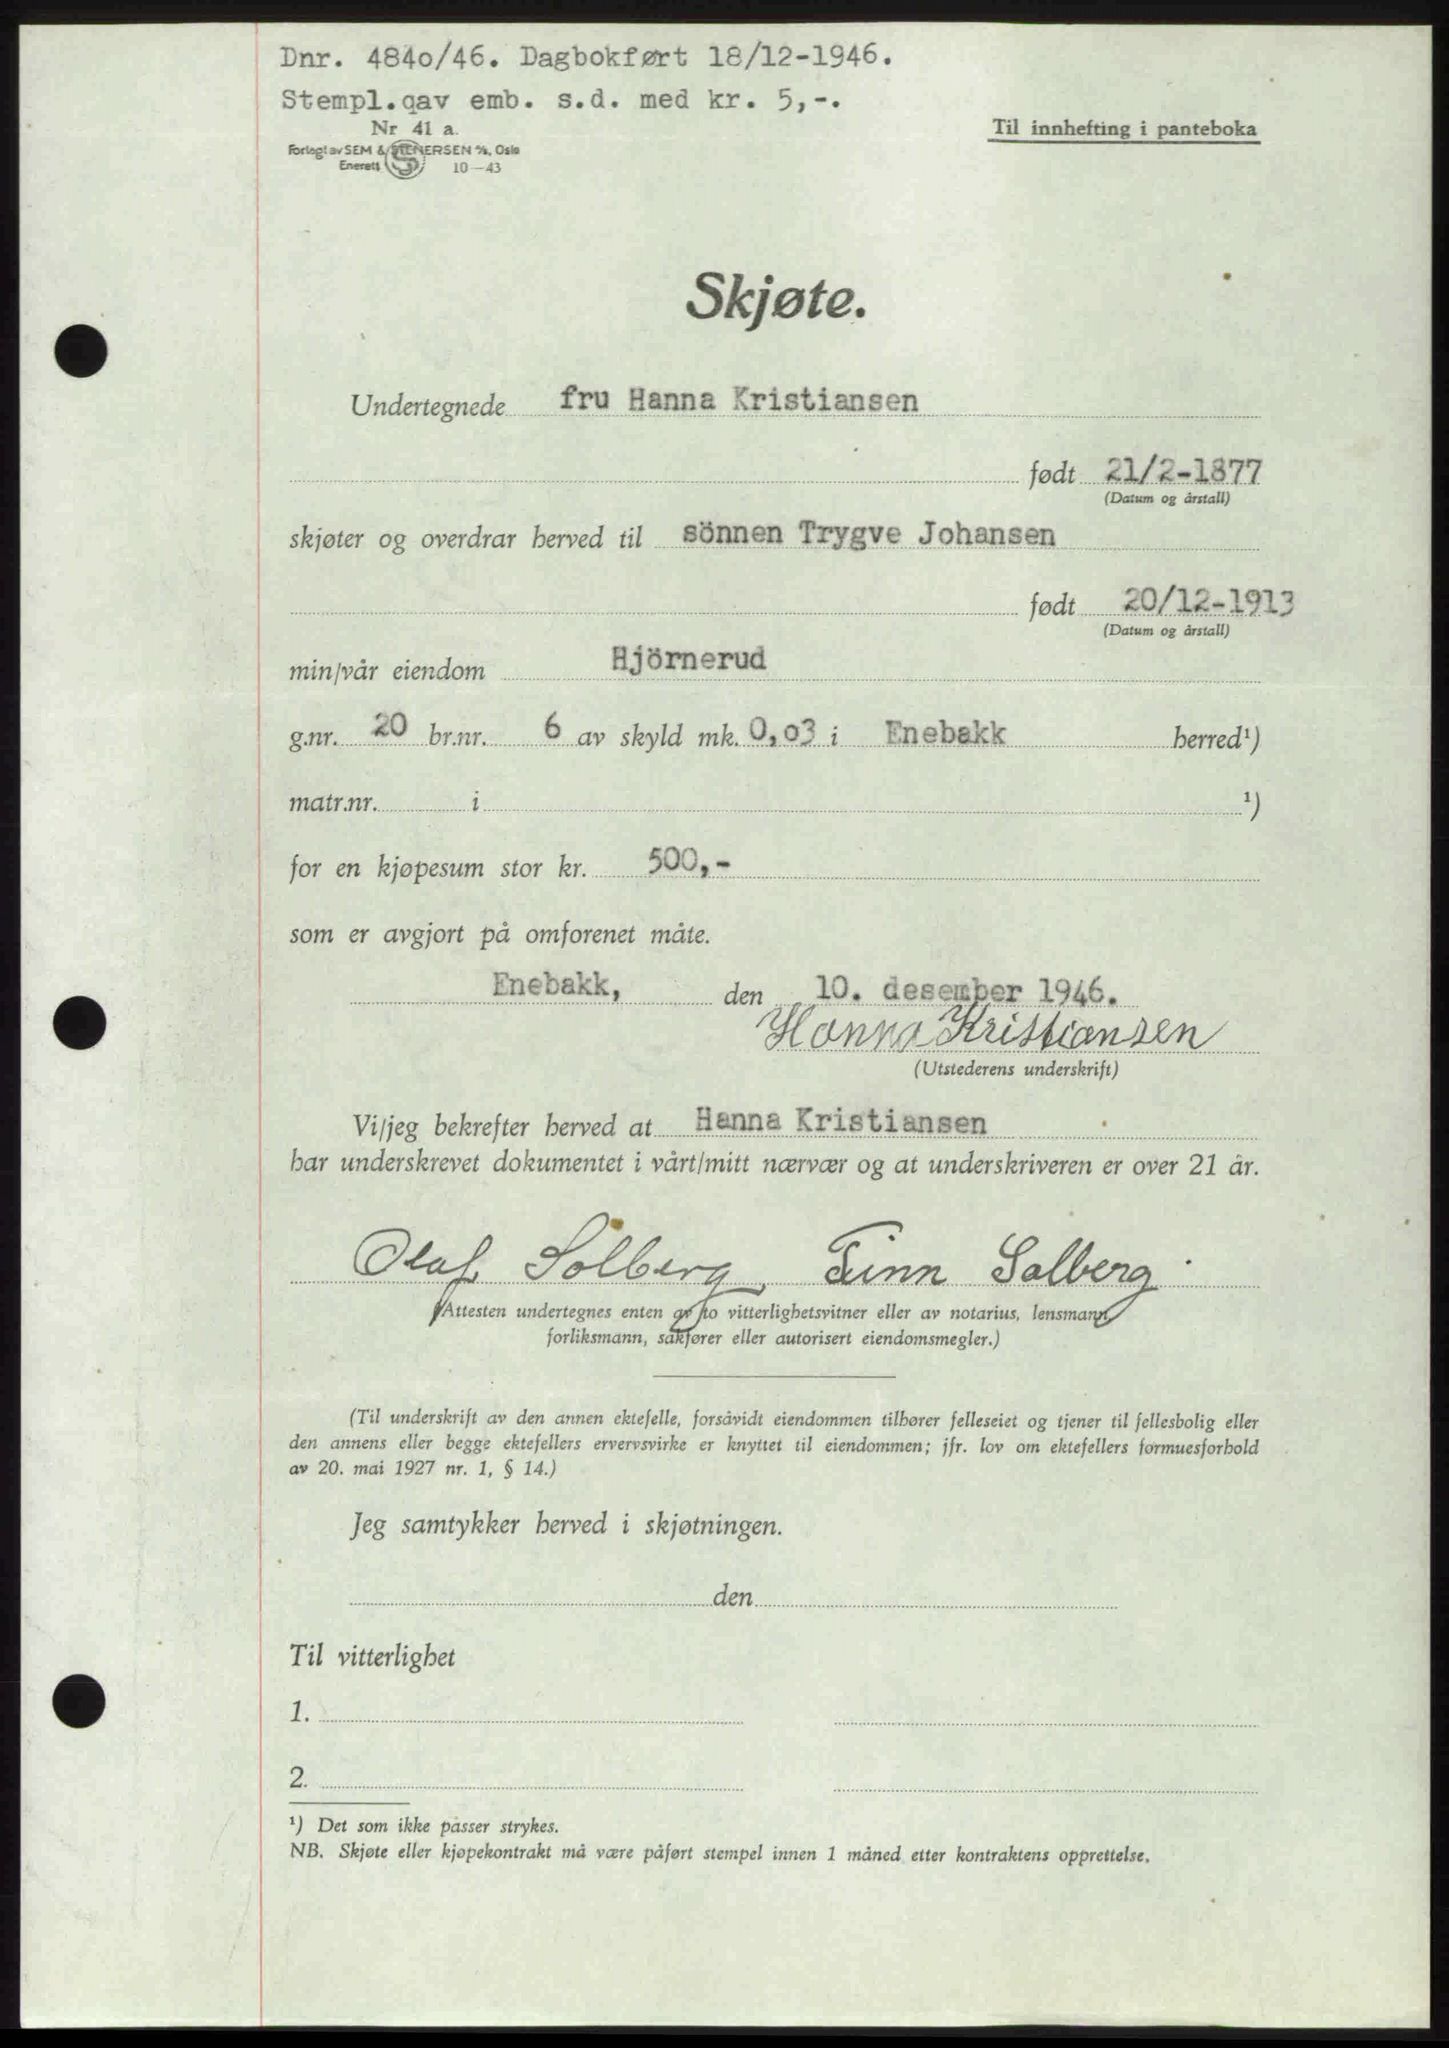 Dnr. 4840/46. Dagbokført 18/12-1946.
Stempl.qav emb. s.d. med kr. 5,-.
Nr 41 a.
Til innhefting i panteboka
Forlagt av SEM & STENERSEN A/S, Oslo
Enerett 10-43
Skjøte.
Undertegnede fru Hanna Kristiansen
født 21/2-1877
(Datum og årstall)
skjøter og overdrar herved til sönnen Trygve Johansen
født 20/12-1913
(Datum og årstall)
min/vår eiendom Hjörnerud
g.nr. 20 br.nr. 6 av skyld mk. 0,03 i Enebakk herred¹)
matr.nr. i ¹)
for en kjøpesum stor kr. 500,-
som er avgjort på omforenet måte.
Enebakk, den 10. desember 1946.
Hanna Kristiansen
(Utstederens underskrift)
Vi/jeg bekrefter herved at Hanna Kristiansen
har underskrevet dokumentet i vårt/mitt nærvær og at underskriveren er over 21 år.
Olaf Solberg, Finn Solberg
(Attesten undertegnes enten av to vitterlighetsvitner eller av notarius, lensmann,
forliksmann, sakfører eller autorisert eiendomsmegler.)
(Til underskrift av den annen ektefelle, forsåvidt eiendommen tilhører felleseiet og tjener til fellesbolig eller
den annens eller begge ektefellers ervervsvirke er knyttet til eiendommen; jfr. lov om ektefellers formuesforhold
av 20. mai 1927 nr. 1, § 14.)
Jeg samtykker herved i skjøtningen.
den
Til vitterlighet
1.
2.
¹) Det som ikke passer strykes.
NB. Skjøte eller kjøpekontrakt må være påført stempel innen 1 måned etter kontraktens opprettelse.